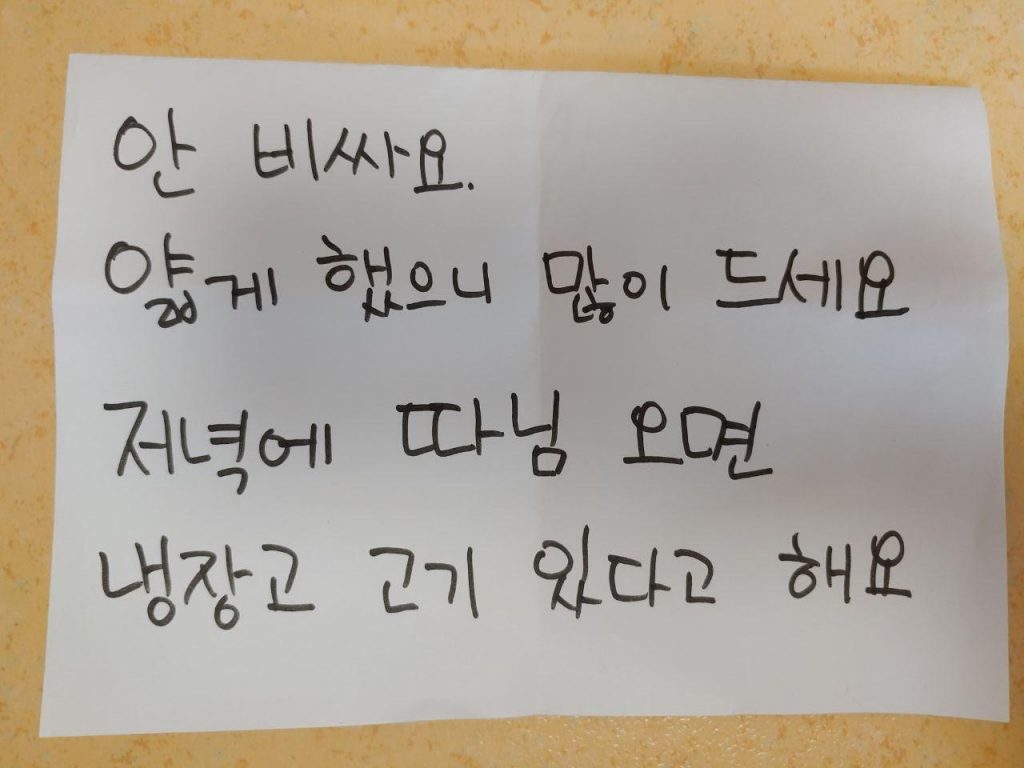 안 비싸요.
얇게 했으니 많이 드세요
저녁에 따님 오면
냉장고 고기 있다고 해요